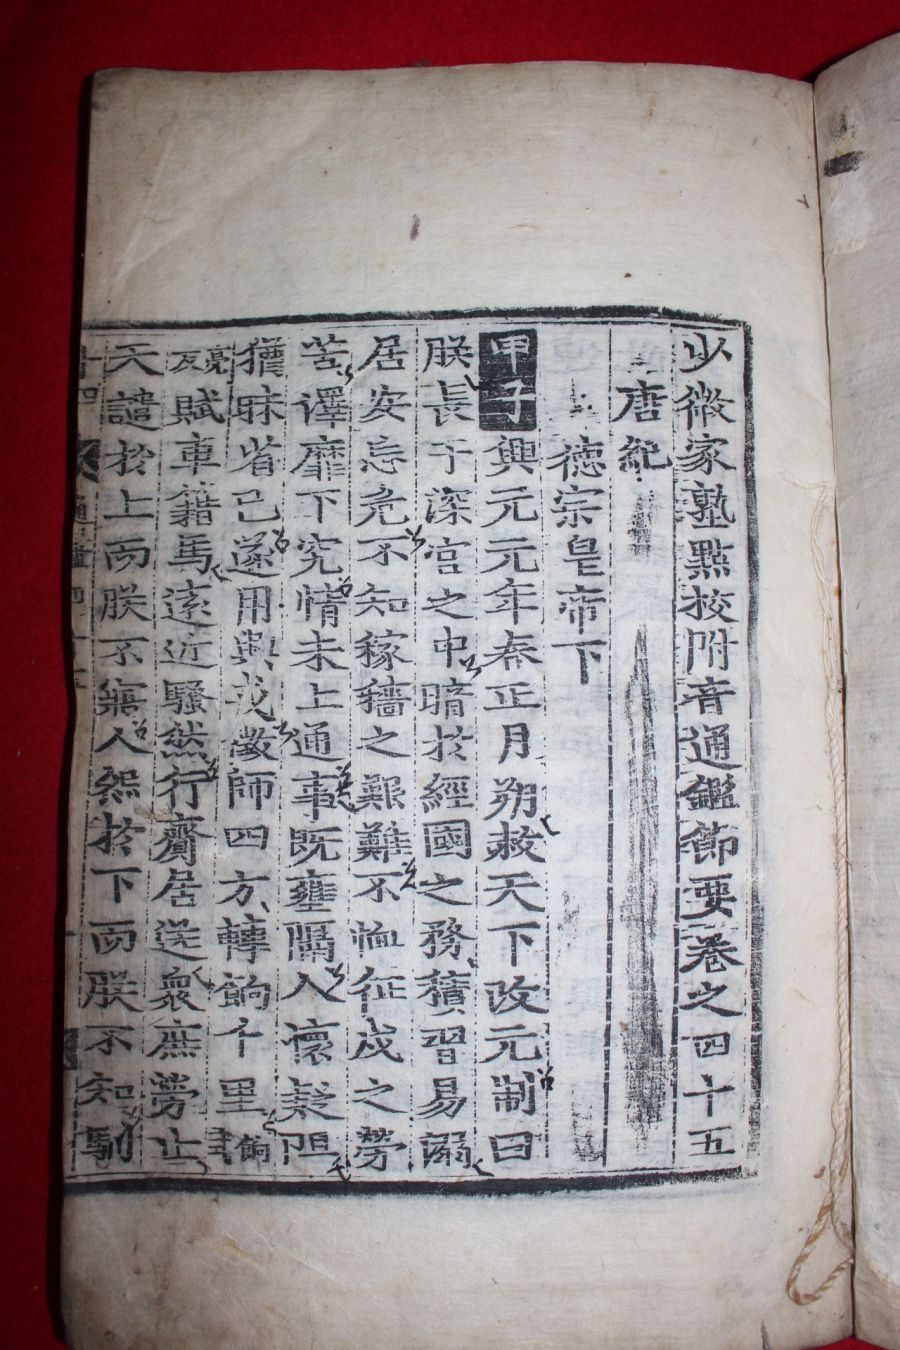 少微家塾點校附音通鑑節要卷之四十五
唐紀
德宗皇帝下
甲子興元元年春正月朔赦天下改元制曰
朕長于深宮之中暗於經國之務積習易溺
居安忘危不知稼穡之艱難不恤征戍之勞
苦澤靡下究情未上通事既壅隔人懷疑阻
猶昧省己遂用興戎徵師四方轉餉千里餉
賦車籍馬遠近騷然行齎居送衆庶勞止
天譴於上而朕不寤人怨於下而朕不知馴